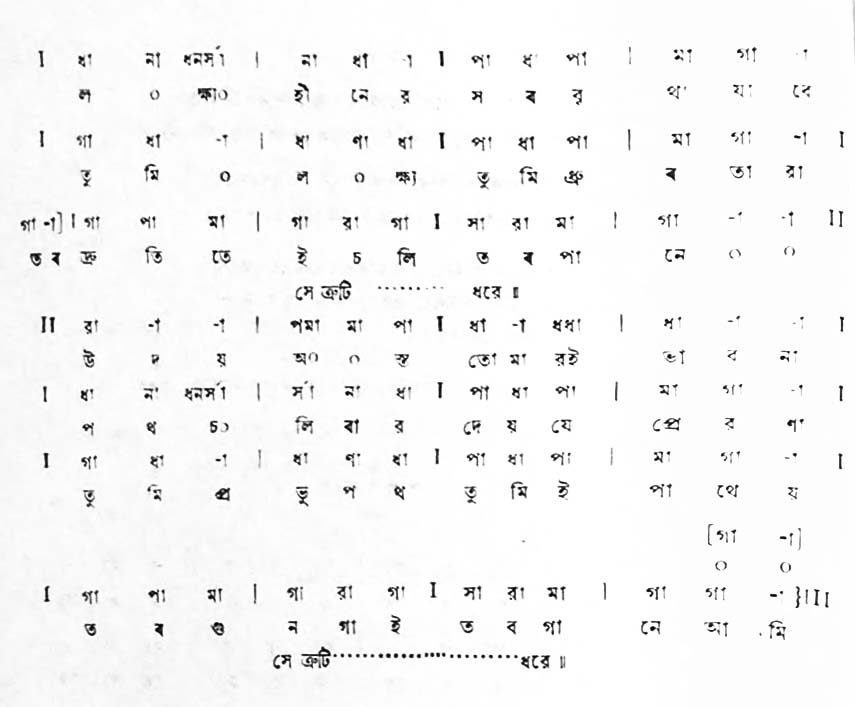 I ধা না ধনর্সা | না ধা -া I পা ধা পা | মা গা -া
ল ০ ক্ষ্য০ হী নে র স ব বৃ থা যা বে
I গা ধা -া | ধা ণা ধা I পা ধা পা | মা গা -া I
তু মি ০ ল ০ ক্ষ্য তু মি ধ্রু ব তা রা
গা -া] I গা পা মা | গা রা গা I সা রা মা | গা -া -া II
ত ব দ্রু তি তে ই চ লি ত ব পা নে ০ ০
সে ত্রুটি ......... ধরে ॥
II রা -া -া | পমা মা পা I ধা -া ধধা | ধা -া -া I
উ দ য় অ০ ০ স্ত তো মা রই ভা ব না
I ধা না ধনর্সা | র্সা না ধা I পা ধা পা | মা গা -া I
প থ চ০ লি বা র দে য় যে প্রে র ণা
I গা ধা -া | ধা ণা ধা I পা ধা পা | মা গা -া I
তু মি প্র ভু প থ তু মি ই পা থে য়
[গা -া]
০ ০
I গা পা মা | গা রা গা I সা রা মা | গা গা -া }III
ত ব গু ন গা ই ত ব গা নে আ মি
সে ত্রুটি......................ধরে ॥